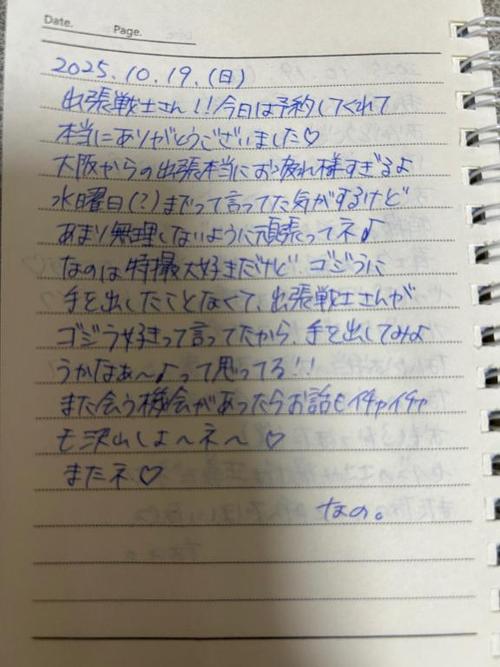 Date.
Page.
2025.10.19.(日)
出張戦士さん!!今日は予約してくれて
本当にありがとうございました♡
大阪からの出張本当にお疲れ様すぎるよ
水曜日(?)までって言ってた気がするけど
あまり無理しないように頑張ってネ♪
なのは特撮大好きだけど ゴジラに
手を出したことなくて、出張戦士さんが
ゴジラ好きって言ってたから、手を出してみよ
うかなぁ〜よって思ってる!!
また会う機会があったらお話もイチャイチャ
も沢山しよ〜ネ〜 ♡
またネ♡
なの。